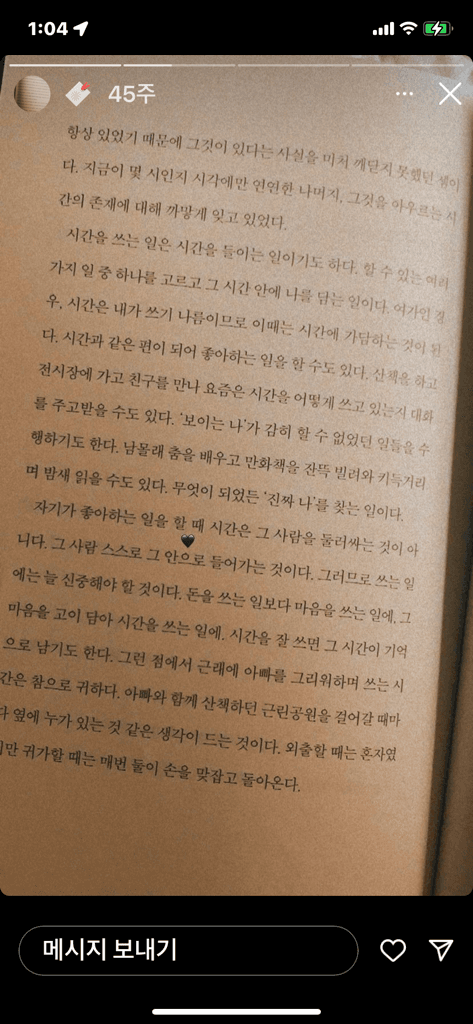 1:04
45주
항상 있었기 때문에 그것이 있다는 사실을 미처 깨닫지 못했던 셈이
다. 지금이 몇 시인지 시각에만 연연한 나머지, 그것을 아우르는 시
간의 존재에 대해 까맣게 잊고 있었다.
시간을 쓰는 일은 시간을 들이는 일이기도 하다. 할 수 있는 여러
가지 일 중 하나를 고르고 그 시간 안에 나를 담는 일이다. 여가인 경
우, 시간은 내가 쓰기 나름이므로 이때는 시간에 가담하는 것이 된
다. 시간과 같은 편이 되어 좋아하는 일을 할 수도 있다. 산책을 하고
전시장에 가고 친구를 만나 요즘은 시간을 어떻게 쓰고 있는지 대화
를 주고받을 수도 있다. ‘보이는 나’가 감히 할 수 없었던 일들을 수
행하기도 한다. 남몰래 춤을 배우고 만화책을 잔뜩 빌려와 키득거리
며 밤새 읽을 수도 있다. 무엇이 되었든 ‘진짜 나’를 찾는 일이다.
자기가 좋아하는 일을 할 때 시간은 그 사람을 둘러싸는 것이 아
니다. 그 사람 스스로 그 안으로 들어가는 것이다. 그러므로 쓰는 일
에는 늘 신중해야 할 것이다. 돈을 쓰는 일보다 마음을 쓰는 일에, 그
마음을 고이 담아 시간을 쓰는 일에. 시간을 잘 쓰면 그 시간이 기억
으로 남기도 한다. 그런 점에서 근래에 아빠를 그리워하며 쓰는 시
간은 참으로 귀하다. 아빠와 함께 산책하던 근린공원을 걸어갈 때마
다 옆에 누가 있는 것 같은 생각이 드는 것이다. 외출할 때는 혼자였
지만 귀가할 때는 매번 둘이 손을 맞잡고 돌아온다.
메시지 보내기